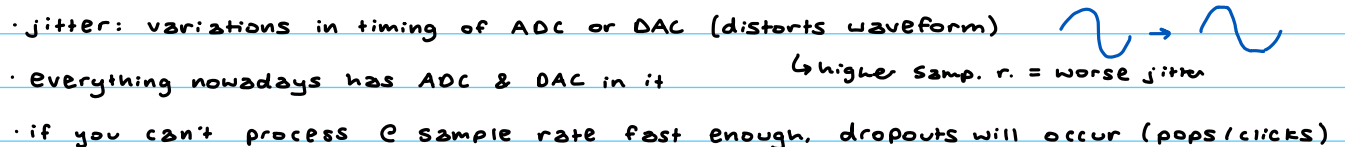 · jitter: variations in timing of ADC or DAC (distorts waveform)
↳ higher samp. r. = worse jitter
· everything nowadays has ADC & DAC in it
· if you can't process @ sample rate fast enough, dropouts will occur (pops/clicks)